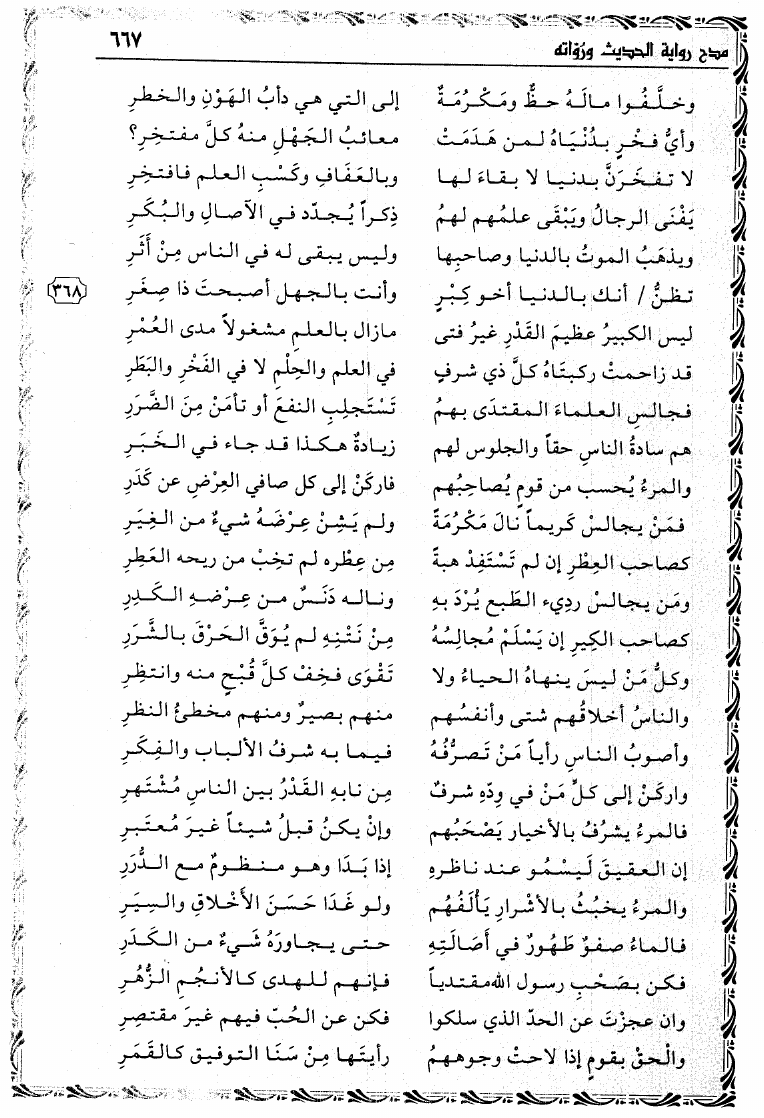 مدح رواية الحديث ورُوَاته ٦٦٧
وخلَّفُوا مالَهُ حظٌّ ومَكْرُمَةٌ إلى التي هي دأبُ الهَوْنِ والخطرِ
وأيُّ فخْرٍ بدُنْيَاهُ لمن هَدَمَتْ معائبُ الجَهْلِ منهُ كلَّ مفتخِرِ؟
لا تفخَرَنَّ بدنيا لا بقاءَ لها وبالعَفَافِ وكَسْبِ العلم فافتخِرِ
يَفْنَى الرجالُ ويَبْقَى علمُهم لهمُ ذِكراً يُجدّد في الآصالِ والبُكَرِ
ويذهَبُ الموتُ بالدنيا وصاحبِها وليس يبقى له في الناس مِنْ أَثَرِ
تظنُّ / أنك بالدنيا أخو كِبْرٍ وأنت بالجهل أصبحتَ ذا صِغَرِ ٣٦٨
ليس الكبيرُ عظيمَ القَدْرِ غيرُ فتى مازال بالعلمِ مشغولاً مدى العُمْرِ
قد زاحمتْ ركبتَاهُ كلَّ ذي شرفٍ في العلم والحِلْمِ لا في الفَخْرِ والبَطَرِ
فجالسِ العلماءَ المقتدَى بهمُ تَسْتَجلِبِ النفعَ أو تأمَنْ مِنَ الضَّرَرِ
هم سادةُ الناسِ حقاً والجلوس لهم زيادةٌ هكذا قد جاء في الخَبَرِ
والمرءُ يُحسب من قومٍ يُصاحِبُهم فاركَنْ إلى كل صافي العِرْضِ عن كَدَرِ
فمَنْ يجالسْ كَريماً نالَ مَكْرُمَةً ولم يَشِنْ عِرْضَهُ شيءٌ من الغِيَرِ
كصاحب العِطْرِ إن لم تَسْتَفِدْ هبةً مِن عِطْره لم تخِبْ من ريحه العَطِرِ
ومَن يجالسْ ردِيء الطَّبع يُرْدَ بهِ وناله دَنَسٌ من عِرْضهِ الكَدِرِ
كصاحب الكِيرِ إن يَسْلَمْ مُجالِسُهُ مِنْ نَتْنِهِ لم يُوَقَّ الحَرْقَ بالشَّرَرِ
وكلُّ مَنْ ليسَ ينهاهُ الحياءُ ولا تَقْوَى فخِفْ كلَّ قُبْحٍ منه وانتظِرِ
والناسُ أخلاقُهم شتى وأنفسُهم منهم بصيرٌ ومنهم مخطئُ النظرِ
وأصوبُ الناسِ رأياً مَنْ تَصرُّفُهُ فيما به شرفُ الألباب والفِكَرِ
واركَنْ إلى كلِّ مَنْ في ودِّهِ شرفٌ مِن نابهِ القَدْرُ بين الناسِ مُشْتَهِرِ
فالمرءُ يشرُفُ بالأخيار يَصْحَبُهم وإنْ يكنُ قبلُ شيئاً غيرَ مُعتَبرِ
إن العقيقَ لَيسْمُو عند ناظرهِ إذا بَدَا وهو منظومٌ مع الدُّرَرِ
والمرءُ يخبُثُ بالأشرارِ يَأْلَفُهُم ولو غَدَا حَسَنَ الأَخْلاقِ والسِيَرِ
فالماءُ صفوٌ طَهُورٌ في أَصَالَتِهِ حتى يجاورَهُ شَيءٌ من الكَدَرِ
فكن بصَحْبِ رسول الله مقتدياً فإنهم للهدى كالأنجُمِ الزُّهْرِ
وان عجزْتَ عن الحدّ الذي سلكوا فكن عن الحُبّ فيهم غيرَ مقتصِرِ
والْحقْ بقومٍ إذا لاحتْ وجوههمُ رأيتَها مِنْ سَنَا التوفيق كالقَمَرِ